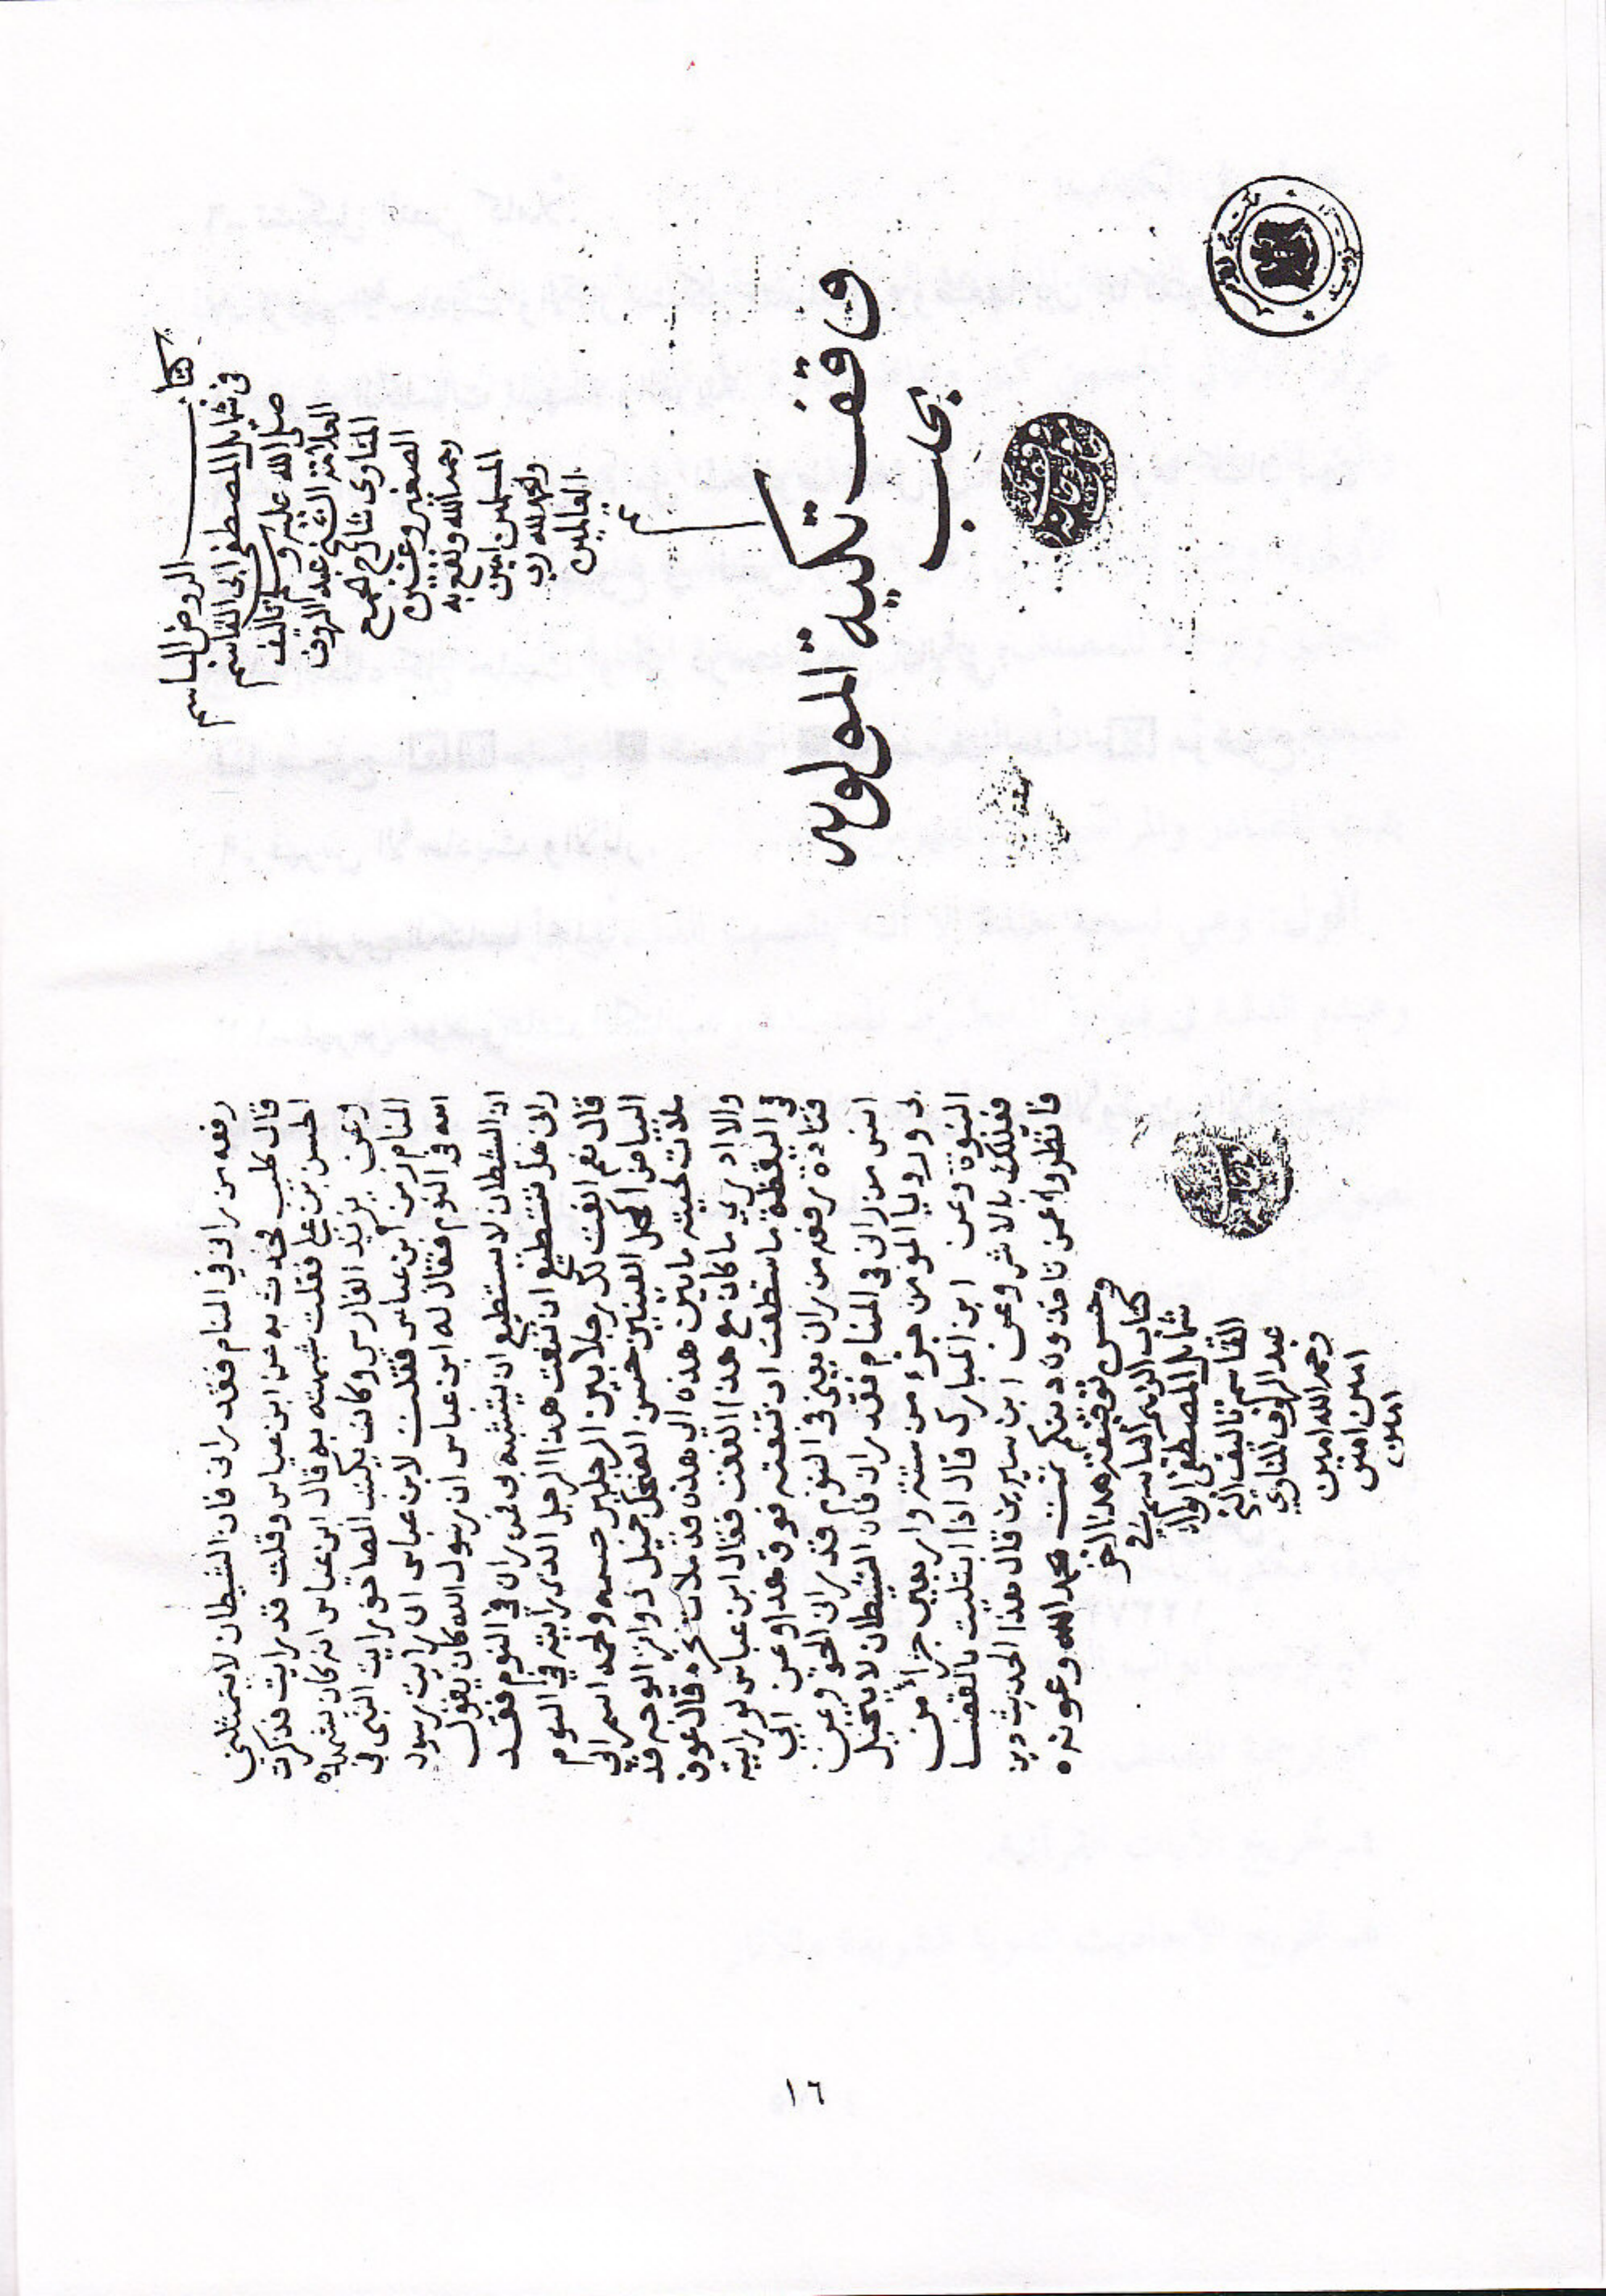 كتاب
الروض الباسم
في شمائل المصطفى ابي القاسم
صلى الله عليه وسلم تاليف
العلامة الشيخ عبد الروف
المناوي شارح جمع
الصغير وغيره
رحمه الله ونفع به
المسلمين امين
والحمد لله رب
العالمين
وقف تكية المولويه
بحلب
رفعه من راني في المنام فقد راني فان الشيطان لا يتمثلني
قال كليب فحدثت به عن ابن عباس وقلت قد رايت فذكرت
الحسن بن علي فقلت شبهته به قال ابن عباس انه كان يشبهه
وعن يزيد الفارسي وكان يكتب المصاحف رايت النبي في
المنام زمن ابن عباس فقلت لابن عباس اني رايت رسول
الله في النوم فقال له ابن عباس ان رسول الله كان يقول
ان الشيطان لا يستطيع ان يتشبه بي فمن راني في النوم فقد
راني هل تستطيع ان تنعت هذا الرجل الذي رايته في النوم
قال نعم انعت لك رجلا بين الرجلين جسمه ولحمه اسمر الي
البياض اكحل العينين حسن الضحك جميل دواير الوجه قد
ملات لحيته ما بين هذه الي هذه قد ملات نحره قال عوف
والا ادري ما كان مع هذا النعت فقال ابن عباس لو رايته
في اليقظة ما استطعت ان تنعته فوق هذا وعن ابي
قتادة رفعه من راني يعني في النوم فقد راني الحق وعن
انس من راني في المنام فقد راني فان الشيطان لا يتخيل
بي ورويا المومن جزء من ستة واربعين جزأ من
النبوة وعن ابن المبارك قال اذا ابتليت بالقضا
فعليك بالاثر وعن ابن سيرين قال هذا الحديث دين
فانظروا عمن تاخذون دينكم تمت بحمد الله وعونه
وحسن توفيقه هذا اخر
كتاب الروض الباسم في
شمائل المصطفى ابي
القاسم تاليف الشيخ
عبد الروف المناوي
رحمه الله امين
امين امين
امين
١٦